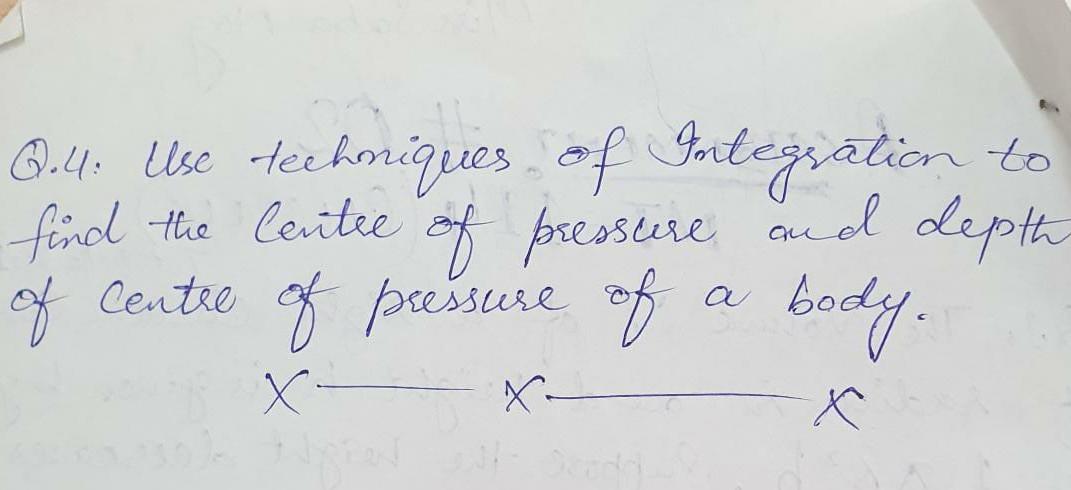 Q.4: Use techniques of Integration to
find the Centre of pressure and depth
of Centre of pressure of a body.
X X X